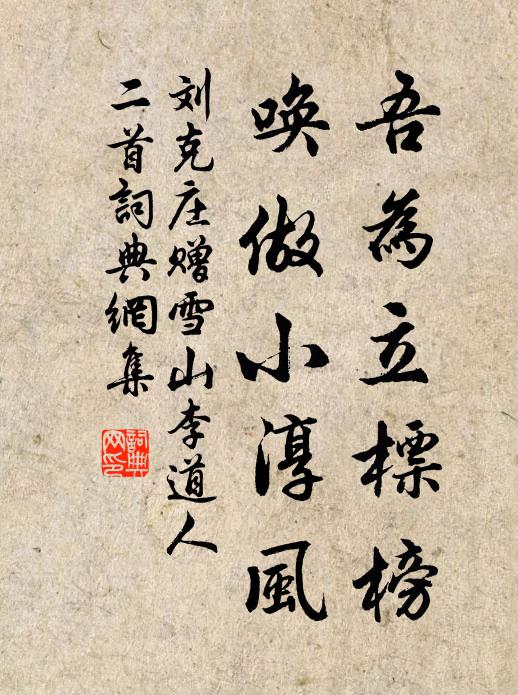 吾為立標榜
喚做小淳風
刘克庄赠雪山李道人
二首詞典網集
詞典網印